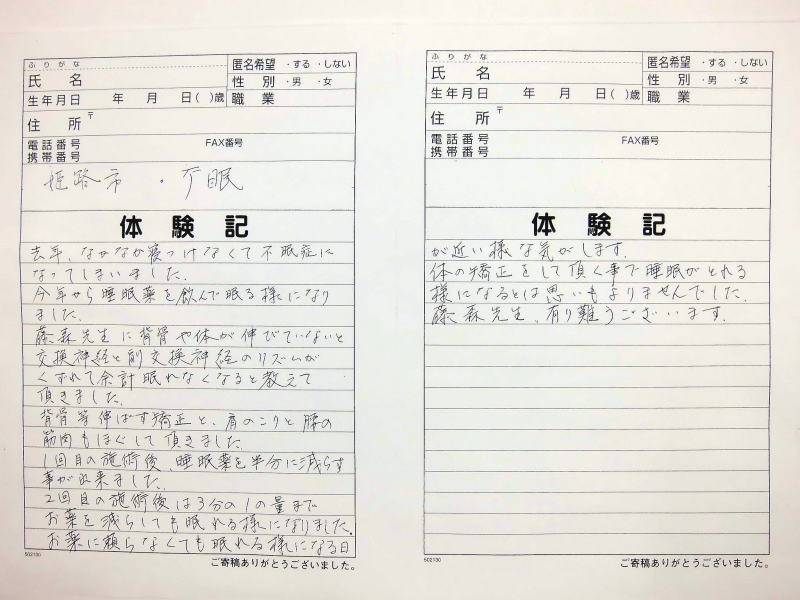 ふりがな
氏 名
匿名希望 ・する ・しない
性 別 ・男 ・女
生年月日 年 月 日( )歳 職 業
住 所 〒
電話番号 FAX番号
携帯番号
姫路市 ・ 不眠
体 験 記
去年、なかなか寝つけなくて不眠症に
なってしまいました。
今年から睡眠薬を飲んで眠る様になり
ました。
藤森先生に背骨や体が伸びていないと
交換神経と副交換神経のリズムが
くずれて余計眠れなくなると教えて
頂きました。
背骨等伸ばす矯正と、肩のこりと腰の
筋肉もほぐして頂きました。
1回目の施術後、睡眠薬を半分に減らす
事が出来ました。
2回目の施術後は3分の1の量まで
お薬を減らしても眠れる様になりました。
お薬に頼らなくても眠れる様になる日
502130
ご寄稿ありがとうございました。
ふりがな
氏 名
匿名希望 ・する ・しない
性 別 ・男 ・女
生年月日 年 月 日( )歳 職 業
住 所 〒
電話番号 FAX番号
携帯番号
体 験 記
が近い様な気がします。
体の矯正をして頂く事で睡眠がとれる
様になるとは思いもよりませんでした。
藤森先生、有り難うございます。
502130
ご寄稿ありがとうございました。